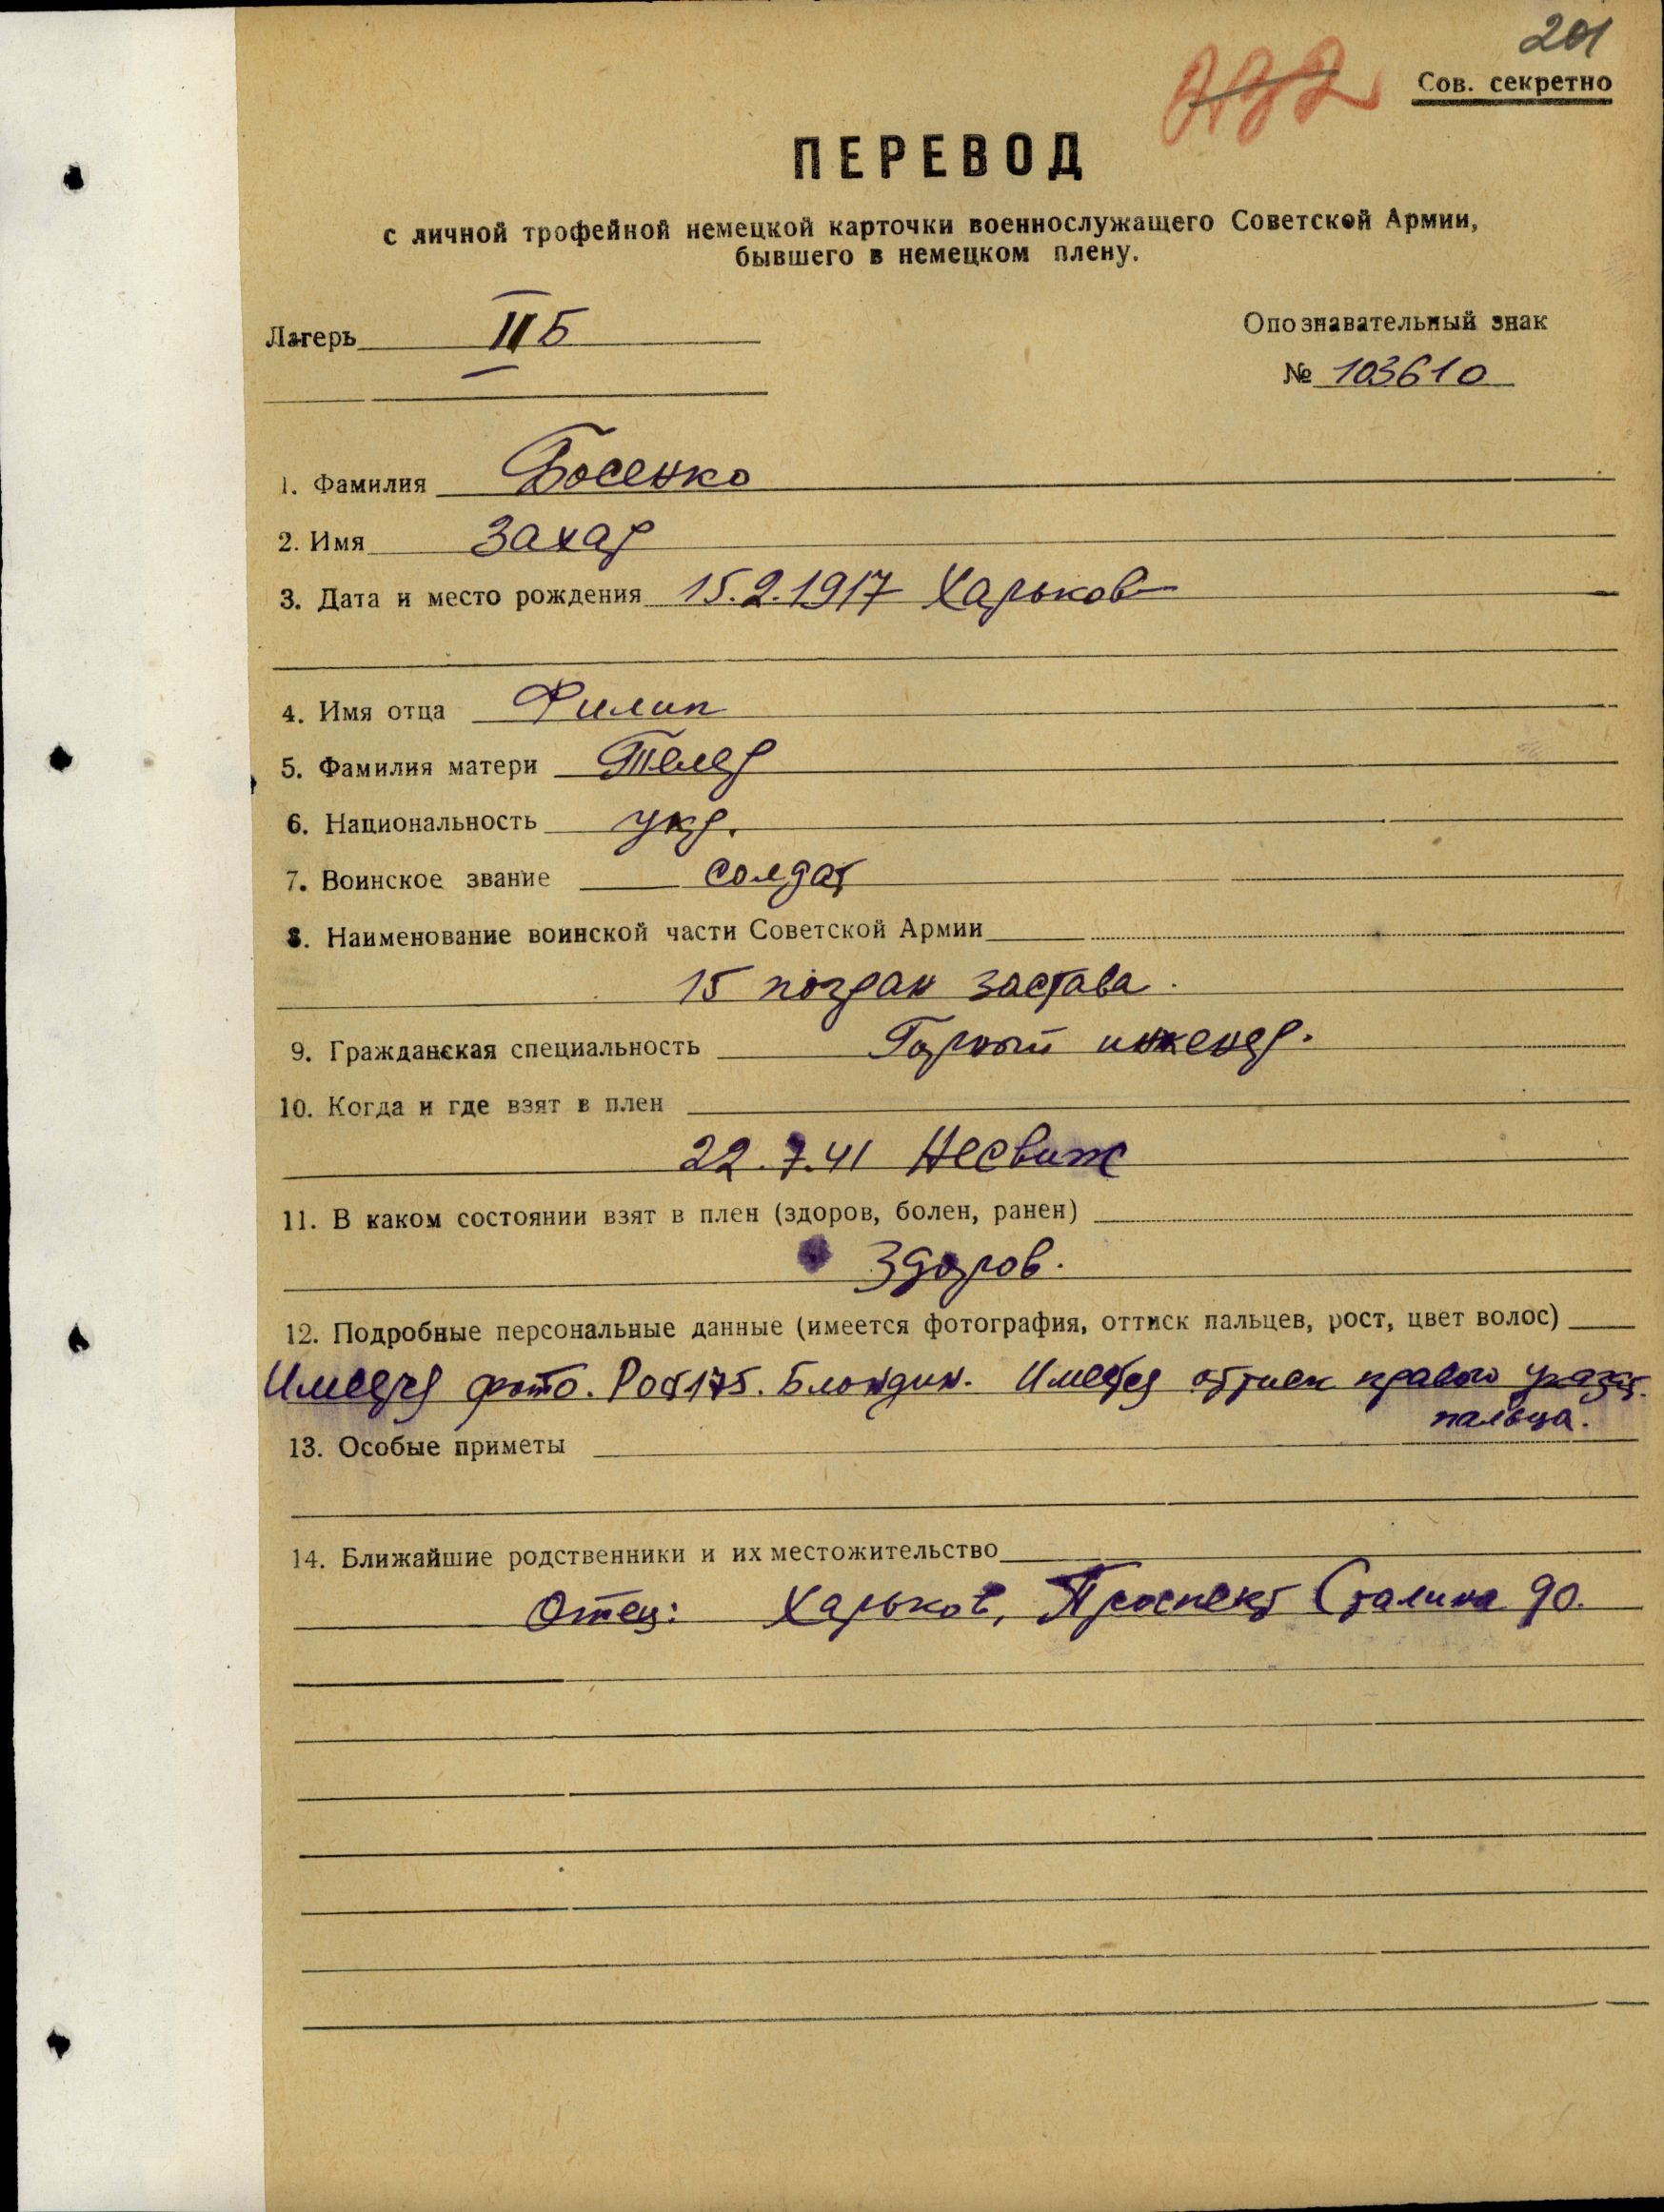 201
Сов. секретно
ПЕРЕВОД
с личной трофейной немецкой карточки военнослужащего Советской Армии,
бывшего в немецком плену.
Лагерь II Б
Опознавательный знак
№ 103610
1. Фамилия Босенко
2. Имя Захар
3. Дата и место рождения 15.2.1917 Харьков
4. Имя отца Филип
5. Фамилия матери Телер
6. Национальность укр.
7. Воинское звание солдат
8. Наименование воинской части Советской Армии
15 погран застава.
9. Гражданская специальность Горный инженер.
10. Когда и где взят в плен
22.7.41 Несвиж
11. В каком состоянии взят в плен (здоров, болен, ранен)
Здоров.
12. Подробные персональные данные (имеется фотография, оттиск пальцев, рост, цвет волос)
Имеется фото. Рост 175. Блондин. Имеется оттиск правого указат.
пальца.
13. Особые приметы
14. Ближайшие родственники и их местожительство
Отец: Харьков, Проспект Сталина 90.